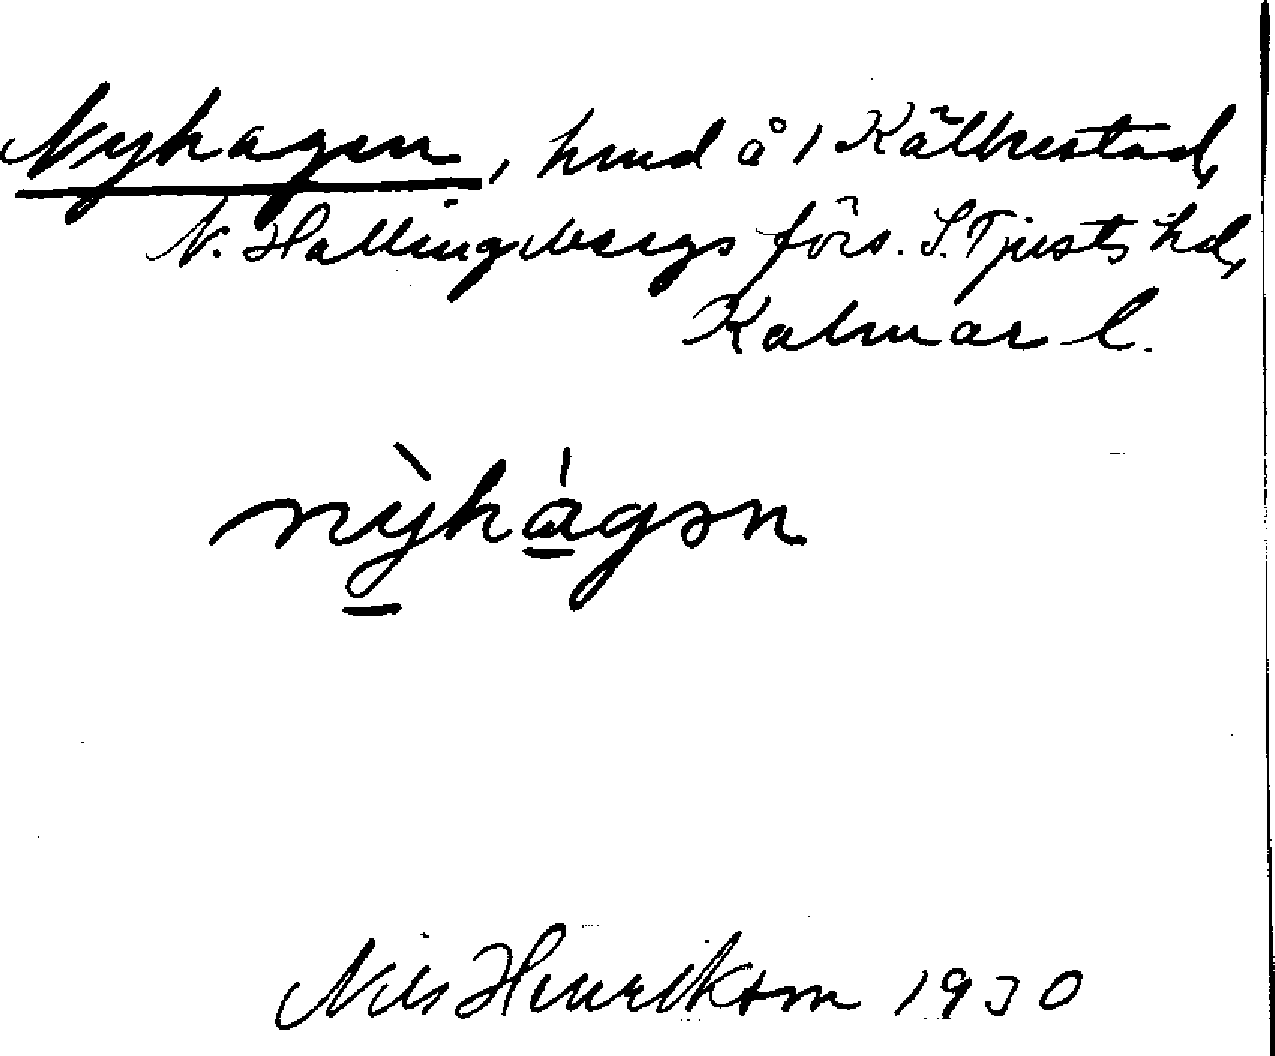 Nyhagen, hmd å 1 Källrestad,
N. Hallingebergs förs. S. Tjusts hd,
Kalmar l.
nỳhàgən
Nils Henrikson 1930